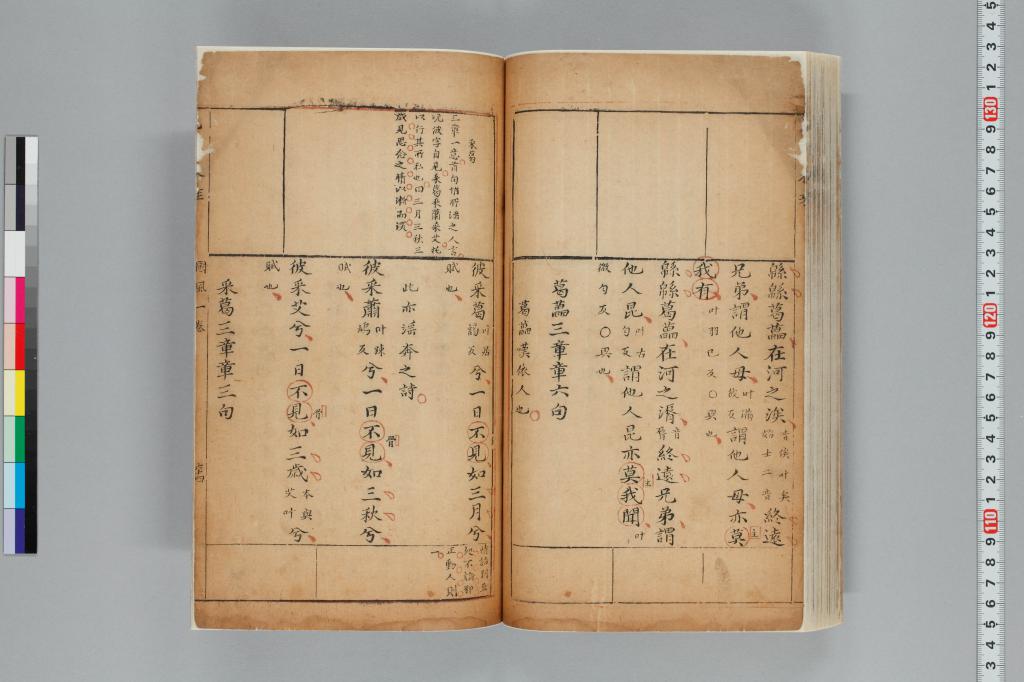 緜緜葛藟在河之涘音俟叶矣始士二音終遠
兄弟謂他人母叶滿故反謂他人母亦莫
我有叶羽已反〇興也
緜緜葛藟在河之漘音脣終遠兄弟謂
他人昆叶古勻反謂他人昆亦莫我聞叶
微勻反〇興也
葛藟三章章六句
葛藟嘆依人也
采葛
三章一意首句指所淫之人言
況彼字自見采葛采蕭采艾托
以行其所私也曰三月三秋三
歲見思念之情以漸而深
彼采葛叶居謁反兮一日不見如三月兮
賦也
此亦淫奔之詩
彼采蕭叶疎鳩反兮一日不見如三秋兮
賦也
彼采艾兮一日不見如三歲本與艾叶兮
賦也
采葛三章章三句
正動人則
國風一卷